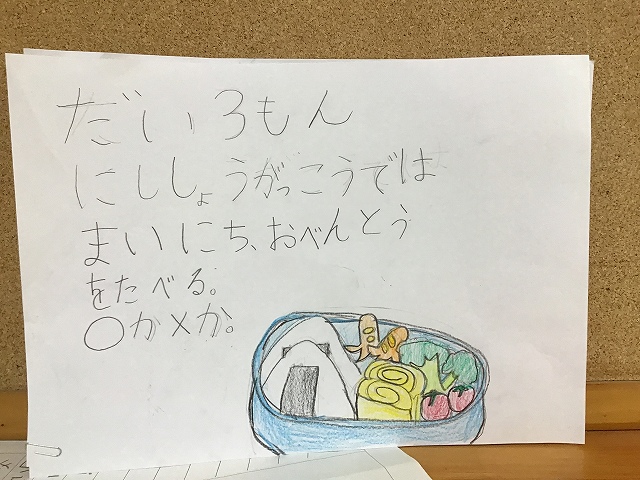 だい3もん
にししょうがっこうでは
まいにち、おべんとう
をたべる。
○か×か。